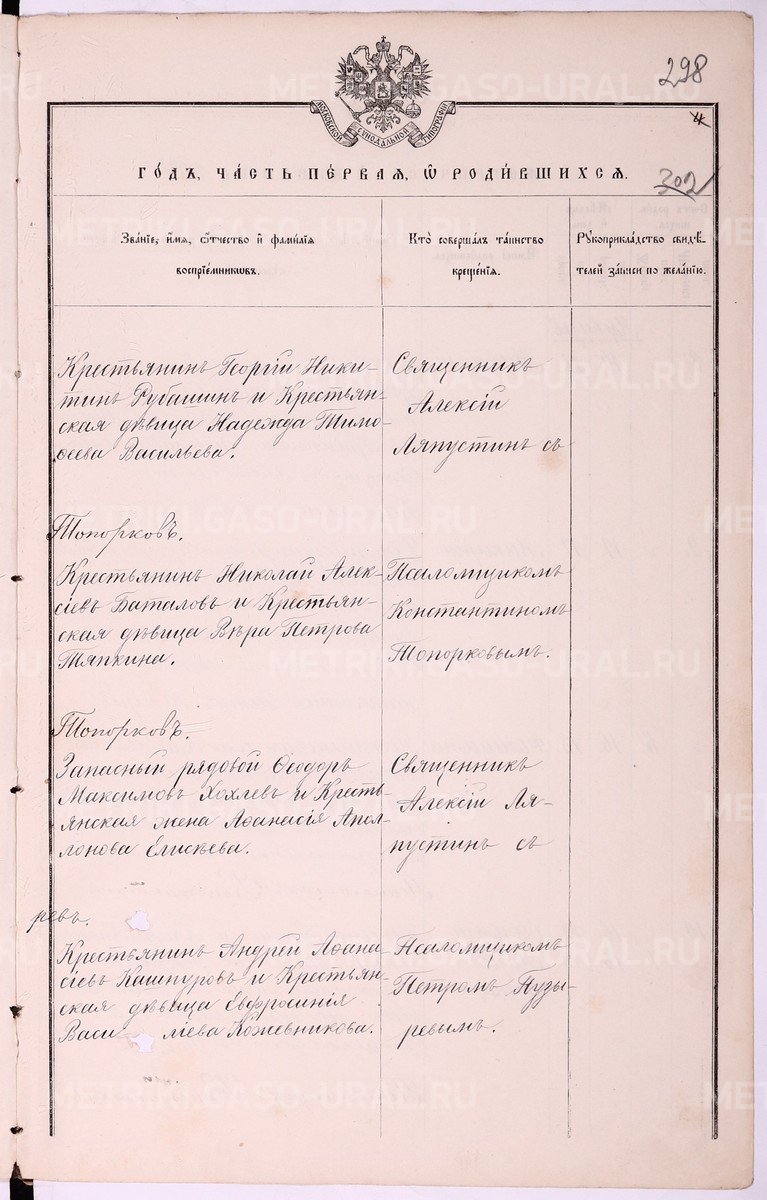 298
4
МОСКОВСКОЙ СѴНОДАЛЬНОЙ ТИПОГРАФІИ
302
ГО́ДЪ, ЧА́СТЬ ПЕ́РВАЯ, Ѡ҆ РОДИ́ВШИХСЯ.
Зва́нїе, и҆́мя, ѻ҆́тчество и҆ фами́лїя
воспрїе́мникѡвъ.
Кто̀ соверша́лъ та́инство
креще́нїя.
Рꙋкоприкла́дство свидѣ́-
телей за́писи по жела́нїю.
Крестьянинъ Георгій Ники-
тинъ Рубашинъ и Крестьян-
ская дѣвица Надежда Тимо-
ѳеева Васильева.
Священникъ
Алексій
Ляпустинъ съ
Топорковъ.
Крестьянинъ Николай Алек-
сіевъ Баталовъ и Крестьян-
ская дѣвица Вѣра Петрова
Тяпкина.
Псаломщикомъ
Константиномъ
Топорковымъ.
Топорковъ.
Запасный рядовой Ѳеодоръ
Максимовъ Хохлевъ и Кресть-
янская жена Аѳанасія Апол-
лонова Елисѣева.
Священникъ
Алексій Ля-
пустинъ съ
ревъ.
Крестьянинъ Андрей Аѳана-
сіевъ Кашпуровъ и Крестьян-
ская дѣвица Евфросинія
Васи лiева Кожевникова.
Псаломщикомъ
Петромъ Пузы-
ревымъ.
METRIKI.GASO-URAL.RU